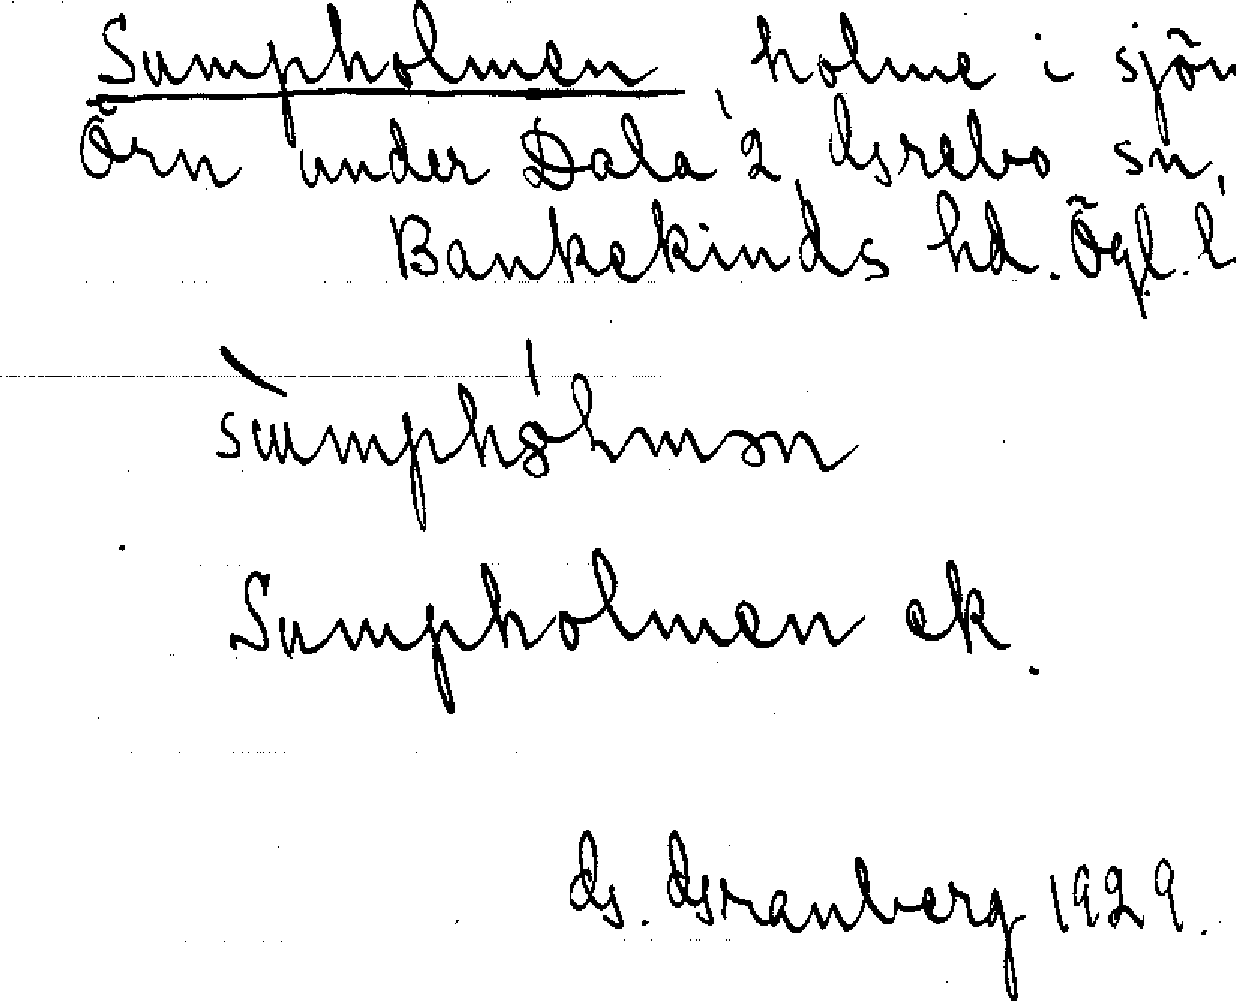 Sumpholmen, holme i sjön
Örn under Dala 2 Grebo sn,
Bankekinds hd. Ögl. l
sumphølmən
Sumpholmen ek.
G. Granberg 1929.